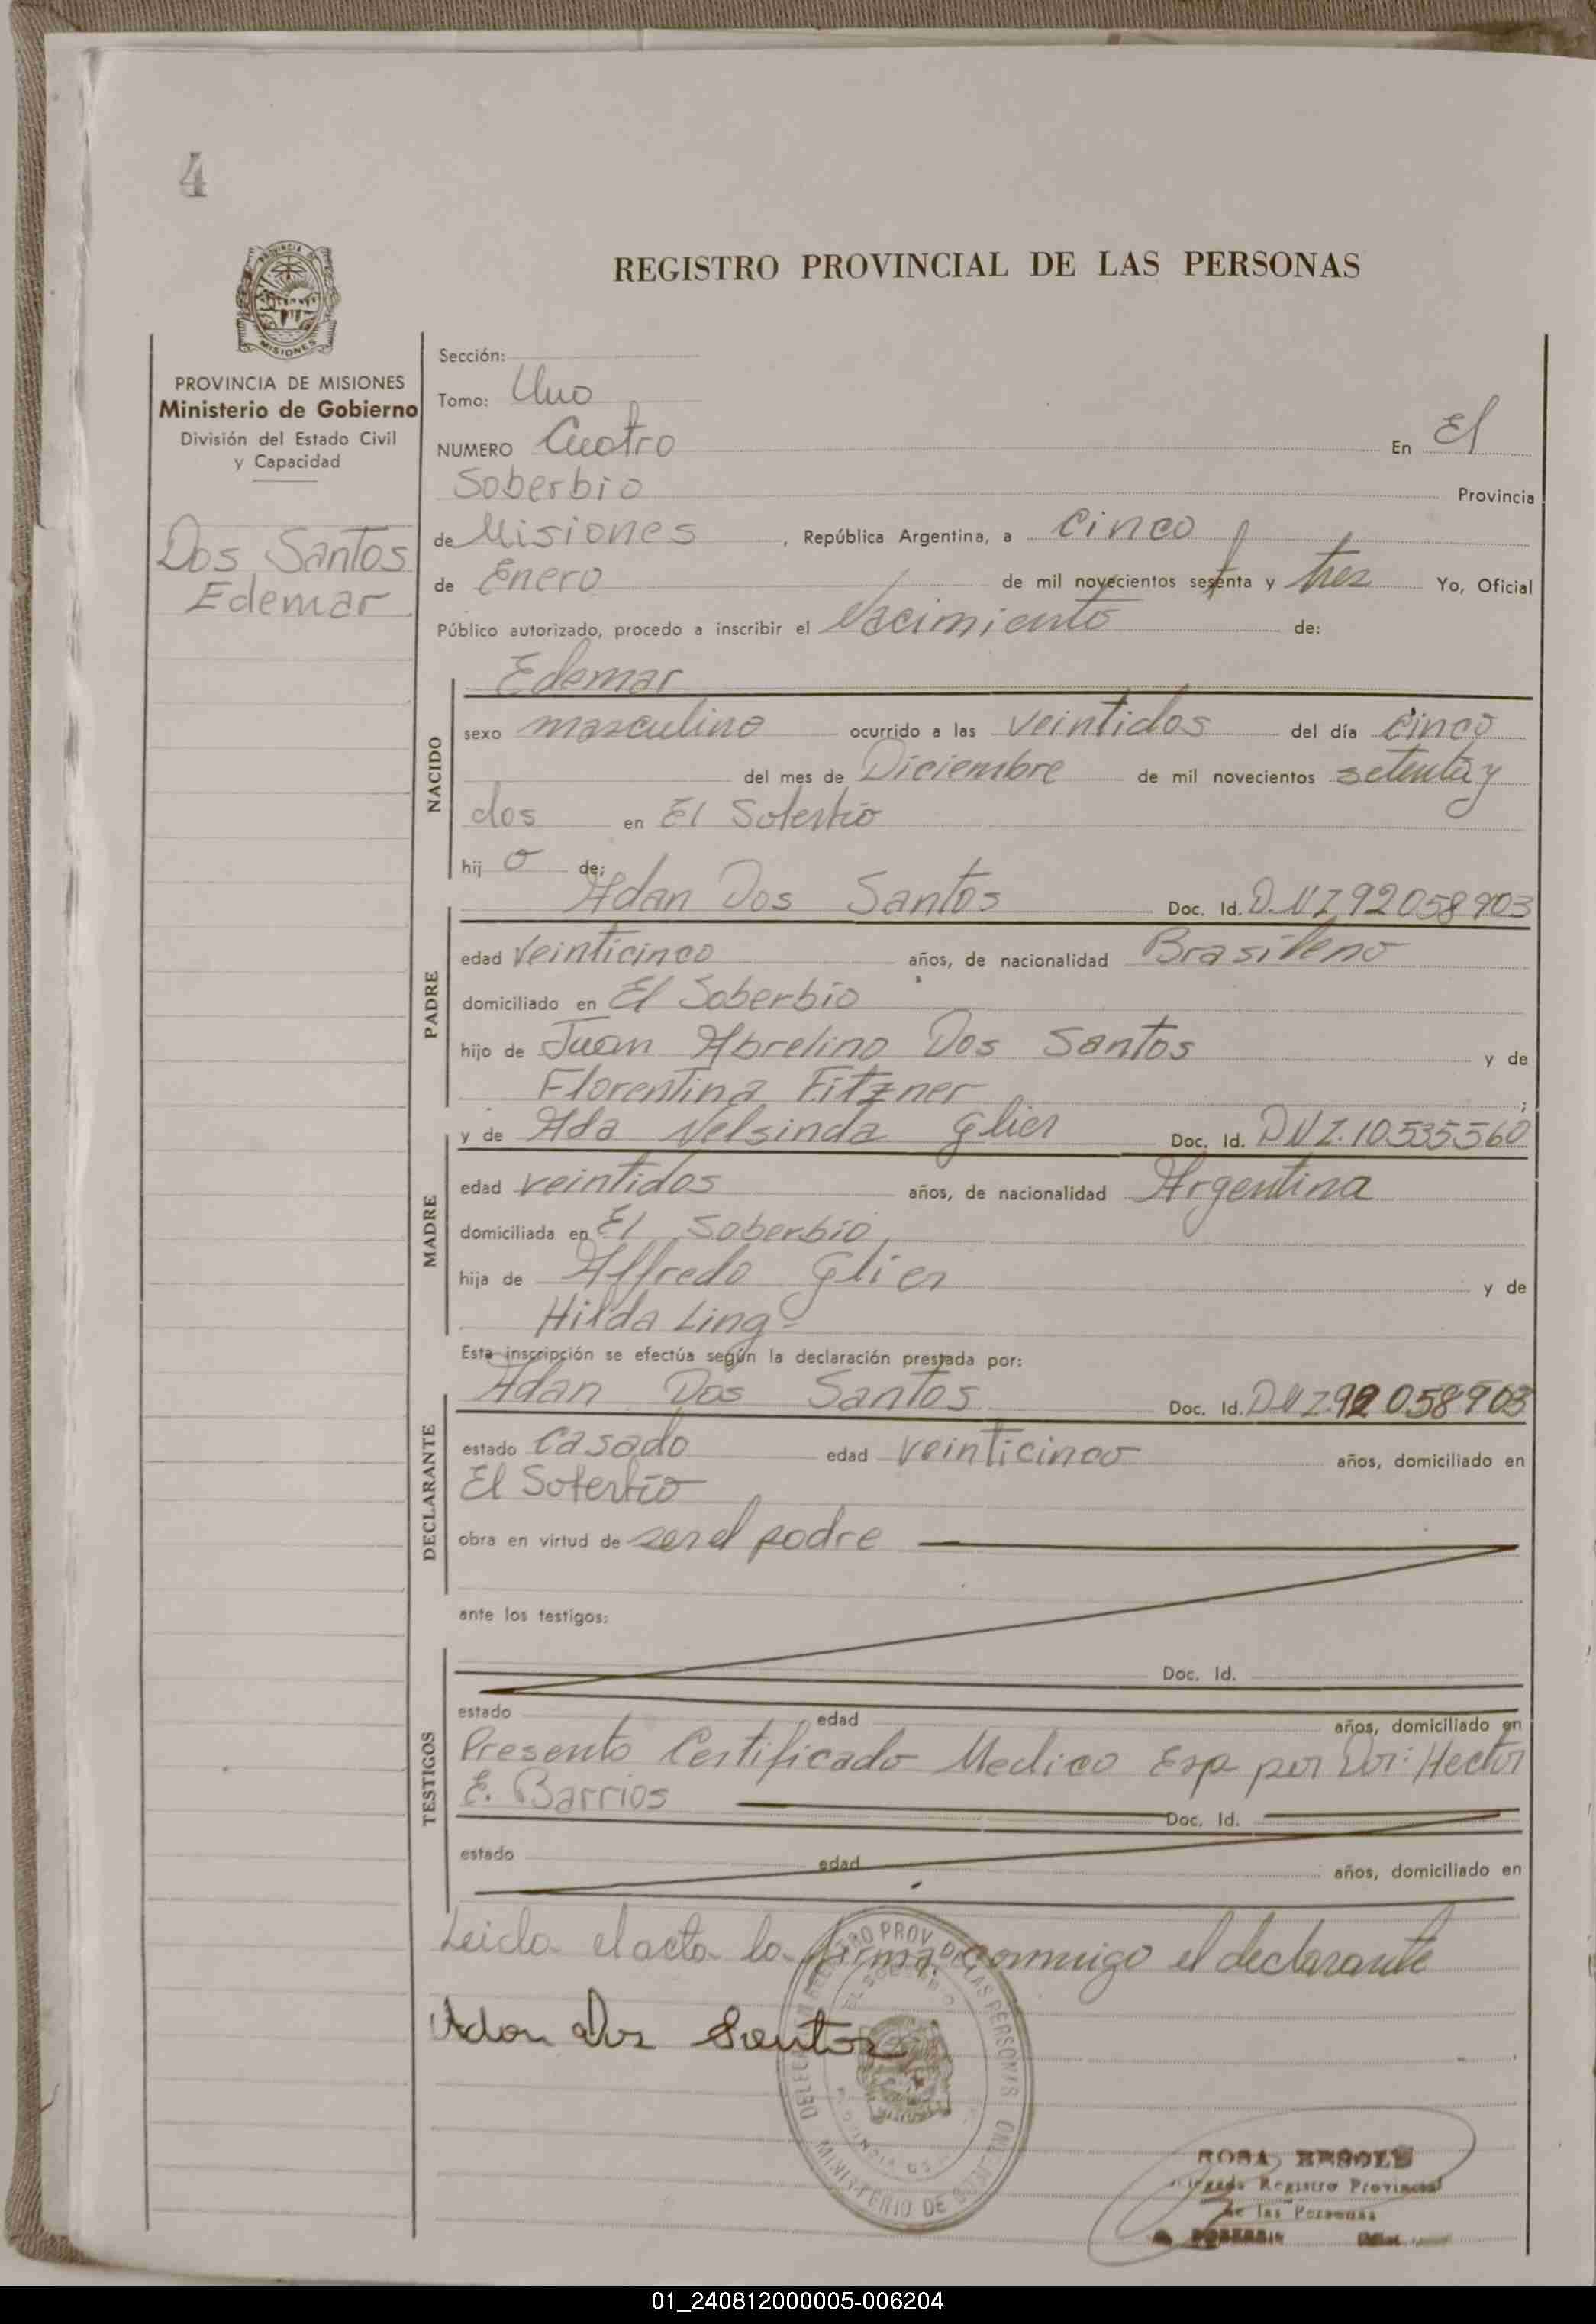 4
REGISTRO PROVINCIAL DE LAS PERSONAS
PROVINCIA DE MISIONES
Ministerio de Gobierno
División del Estado Civil
y Capacidad
Dos Santos
Edemar
Sección:
Tomo: Uno
NUMERO Cuatro En El
Soberbio Provincia
de Misiones, República Argentina, a cinco
de Enero de mil novecientos sesenta y tres Yo, Oficial
Público autorizado, procedo a inscribir el Nacimiento de:
Edemar
NACIDO
sexo masculino ocurrido a las veintidos del día cinco
del mes de Diciembre de mil novecientos setenta y
dos en El Soberbio
hij o de:
Adan Dos Santos Doc. Id. D.N.I 92058903
PADRE
edad veinticinco años, de nacionalidad Brasileno
domiciliado en El Soberbio
hijo de Juan Abrelino Dos Santos y de
Florentina Fitzner ;
y de Ada Nelsinda Glier Doc. Id. DNI.10.535560
MADRE
edad veintidos años, de nacionalidad Argentina
domiciliada en El Soberbio,
hija de Alfredo Glier y de
Hilda Ling=
Esta inscripción se efectúa según la declaración prestada por:
Adan Dos Santos Doc. Id. DNI 92058903
DECLARANTE
estado casado edad veinticinco años, domiciliado en
El Soberbio
obra en virtud de ser el padre
ante los testigos:
Doc. Id.
TESTIGOS
estado edad años, domiciliado en
Presento Certificado Medico Exp por Dr: Hector
E. Barrios Doc. Id.
estado edad años, domiciliado en
Leida el acta la firma conmigo el declarante
Adan Dos Santos
ROSA
Registro Provincial
de las Personas
01_240812000005-006204